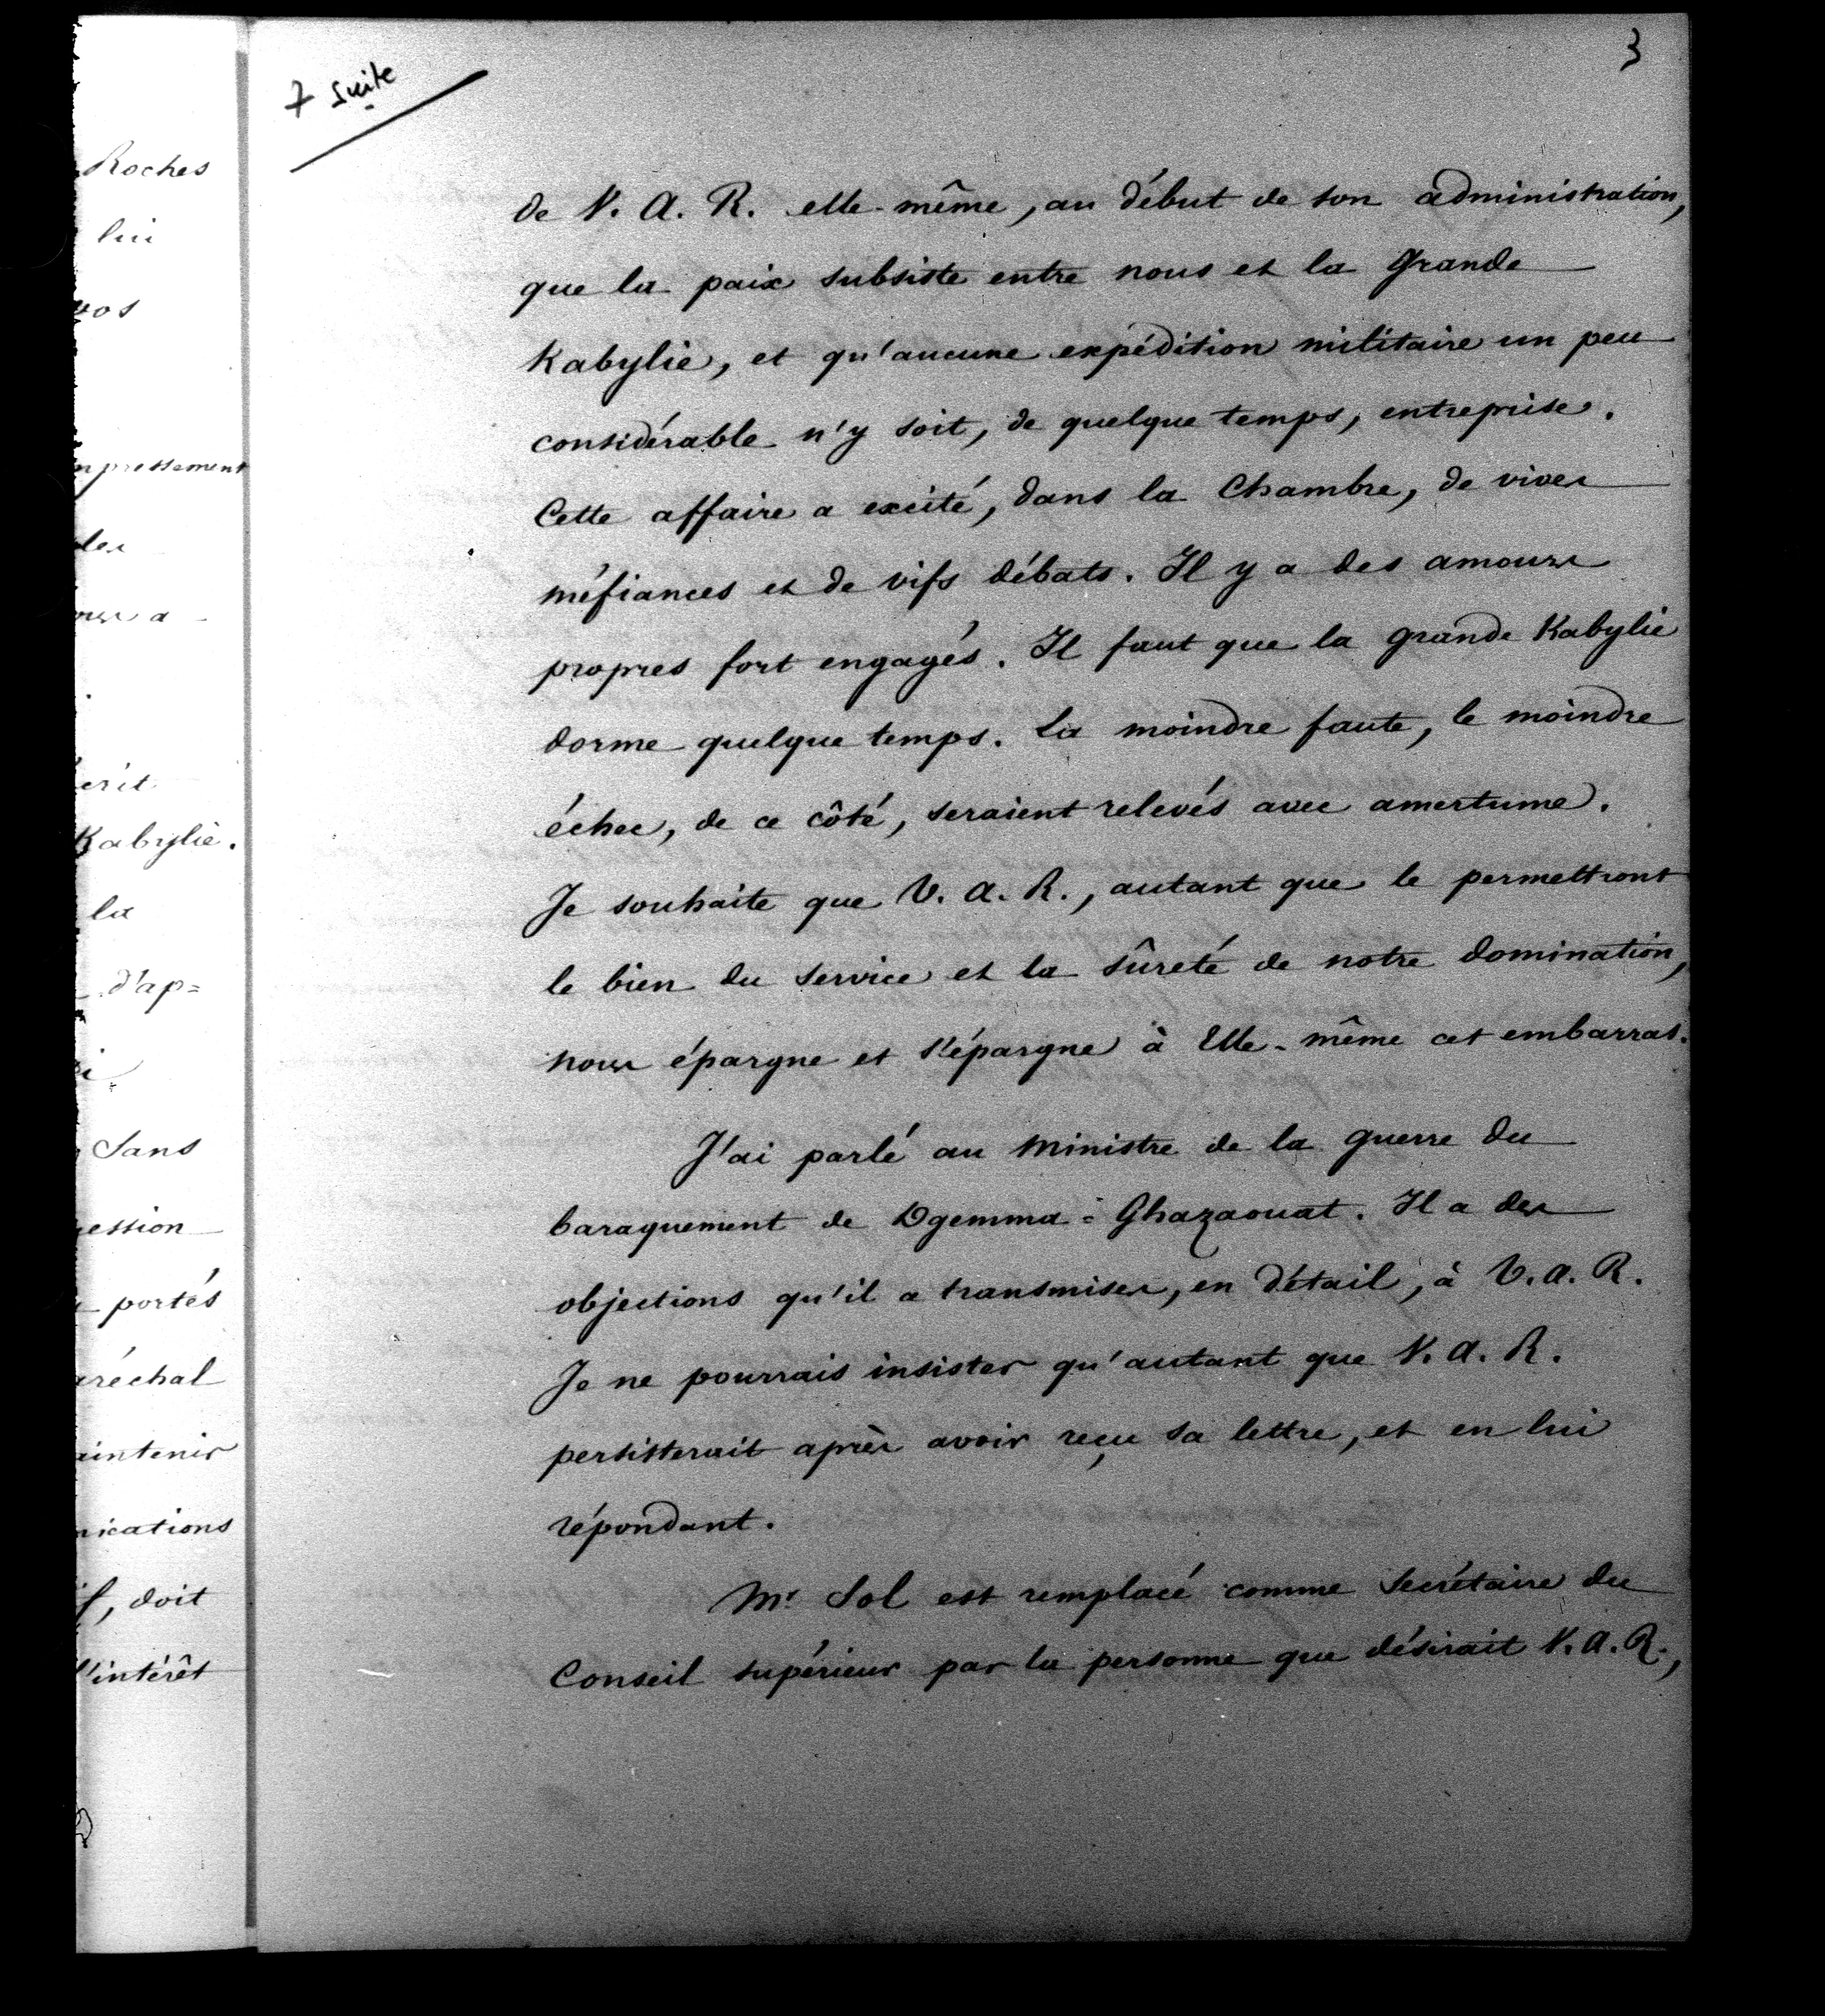 7 suite
3
de V. A. R. elle-même, au début de son administration,
que la paix subsiste entre nous et la Grande
Kabylie, et qu'aucune expédition militaire un peu
considérable n'y soit, de quelque temps, entreprise.
Cette affaire a excité, dans la Chambre, de vives
méfiances et de vifs débats. Il y a des amours
propres fort engagés. Il faut que la grande Kabylie
dorme quelque temps. La moindre faute, le moindre
échec, de ce côté, seraient relevés avec amertume.
Je souhaite que V. A. R., autant que le permettront
le bien du service et la sûreté de notre domination,
nous épargne et s'épargne à Elle-même cet embarras.
J'ai parlé au Ministre de la guerre du
baraquement de Dgemma=Ghazaouat. Il a des
objections qu'il a transmises, en détail, à V. A. R.
Je ne pourrais insister qu'autant que V. A. R.
persisterait après avoir reçu sa lettre, et en lui
répondant.
Mr. Sol est remplacé comme Secrétaire du
Conseil supérieur par la personne que désirait V. A. R.,
Roches
lui
vos
mpressement
des
a
érit
Kabylie.
la
d'ap=
Sans
ession
portés
aréchal
aintenir
nications
f, doit
l'intérêt